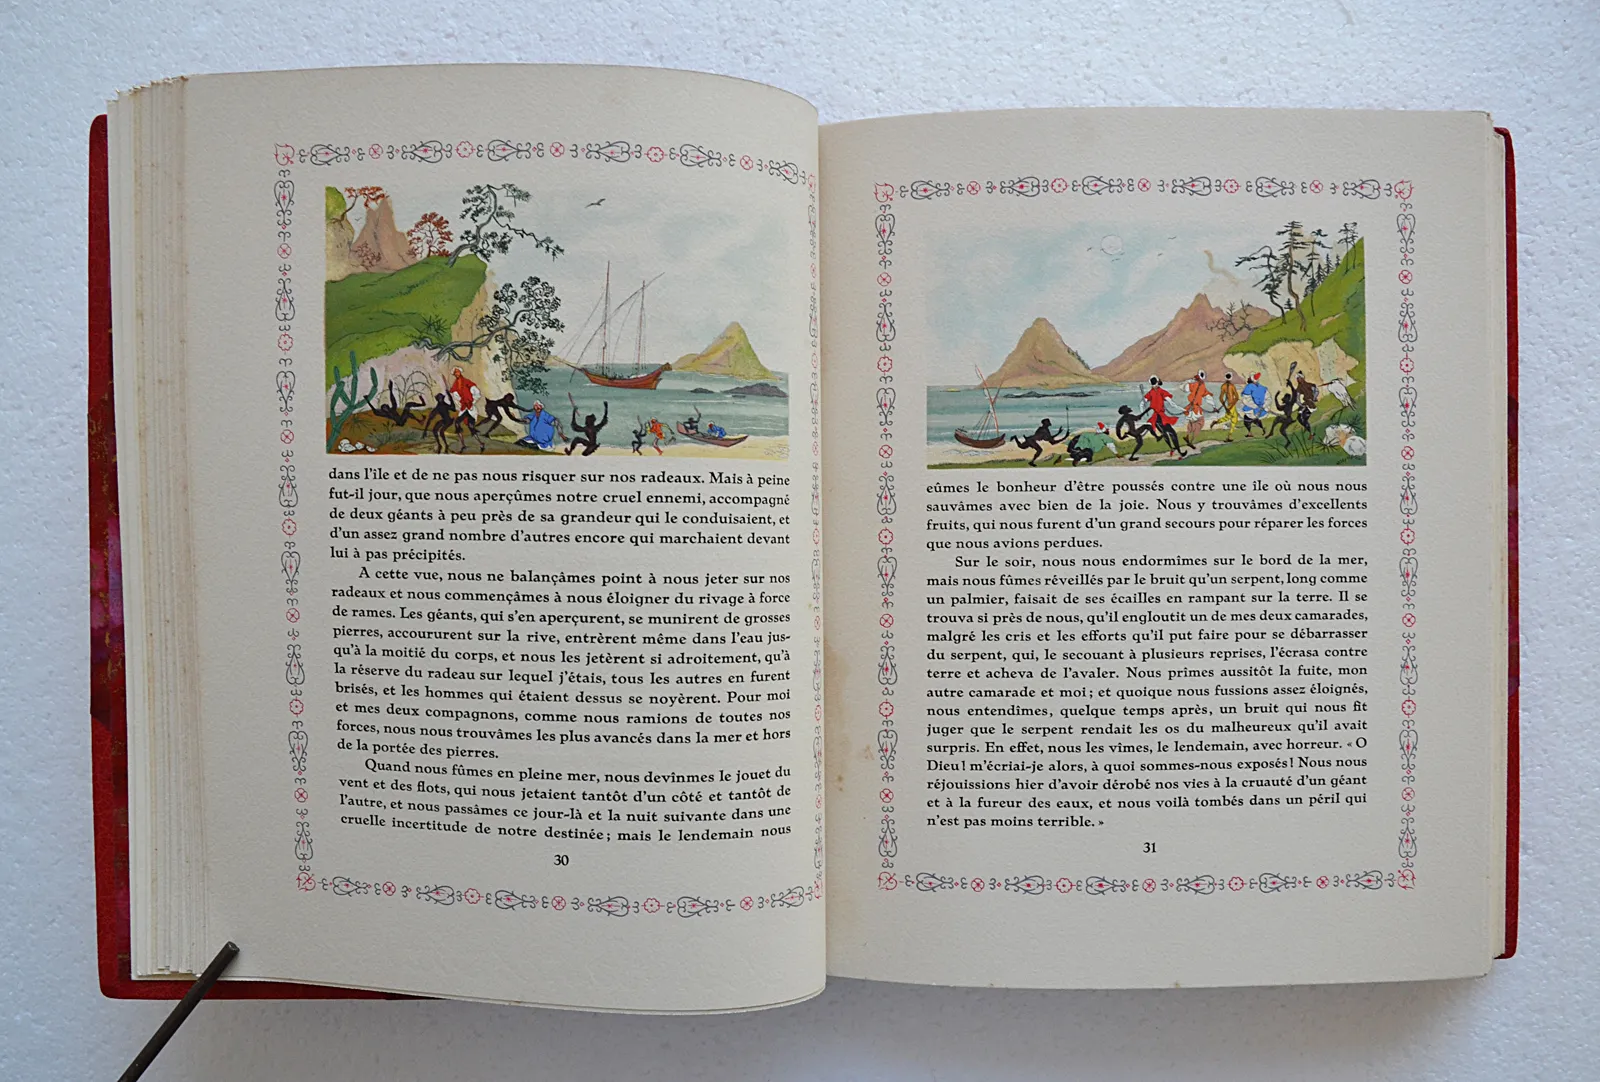 dans l'île et de ne pas nous risquer sur nos radeaux. Mais à peine
fut-il jour, que nous aperçûmes notre cruel ennemi, accompagné
de deux géants à peu près de sa grandeur qui le conduisaient, et
d'un assez grand nombre d'autres encore qui marchaient devant
lui à pas précipités.
A cette vue, nous ne balançâmes point à nous jeter sur nos
radeaux et nous commençâmes à nous éloigner du rivage à force
de rames. Les géants, qui s'en aperçurent, se munirent de grosses
pierres, accoururent sur la rive, entrèrent même dans l'eau jus-
qu'à la moitié du corps, et nous les jetèrent si adroitement, qu'à
la réserve du radeau sur lequel j'étais, tous les autres en furent
brisés, et les hommes qui étaient dessus se noyèrent. Pour moi
et mes deux compagnons, comme nous ramions de toutes nos
forces, nous nous trouvâmes les plus avancés dans la mer et hors
de la portée des pierres.
Quand nous fûmes en pleine mer, nous devînmes le jouet du
vent et des flots, qui nous jetaient tantôt d'un côté et tantôt de
l'autre, et nous passâmes ce jour-là et la nuit suivante dans une
cruelle incertitude de notre destinée ; mais le lendemain nous
30
eûmes le bonheur d'être poussés contre une île où nous nous
sauvâmes avec bien de la joie. Nous y trouvâmes d'excellents
fruits, qui nous furent d'un grand secours pour réparer les forces
que nous avions perdues.
Sur le soir, nous nous endormîmes sur le bord de la mer,
mais nous fûmes réveillés par le bruit qu'un serpent, long comme
un palmier, faisait de ses écailles en rampant sur la terre. Il se
trouva si près de nous, qu'il engloutit un de mes deux camarades,
malgré les cris et les efforts qu'il put faire pour se débarrasser
du serpent, qui, le secouant à plusieurs reprises, l'écrasa contre
terre et acheva de l'avaler. Nous prîmes aussitôt la fuite, mon
autre camarade et moi ; et quoique nous fussions assez éloignés,
nous entendîmes, quelque temps après, un bruit qui nous fit
juger que le serpent rendait les os du malheureux qu'il avait
surpris. En effet, nous les vîmes, le lendemain, avec horreur. « O
Dieu ! m'écriai-je alors, à quoi sommes-nous exposés ! Nous nous
réjouissions hier d'avoir dérobé nos vies à la cruauté d'un géant
et à la fureur des eaux, et nous voilà tombés dans un péril qui
n'est pas moins terrible. »
31